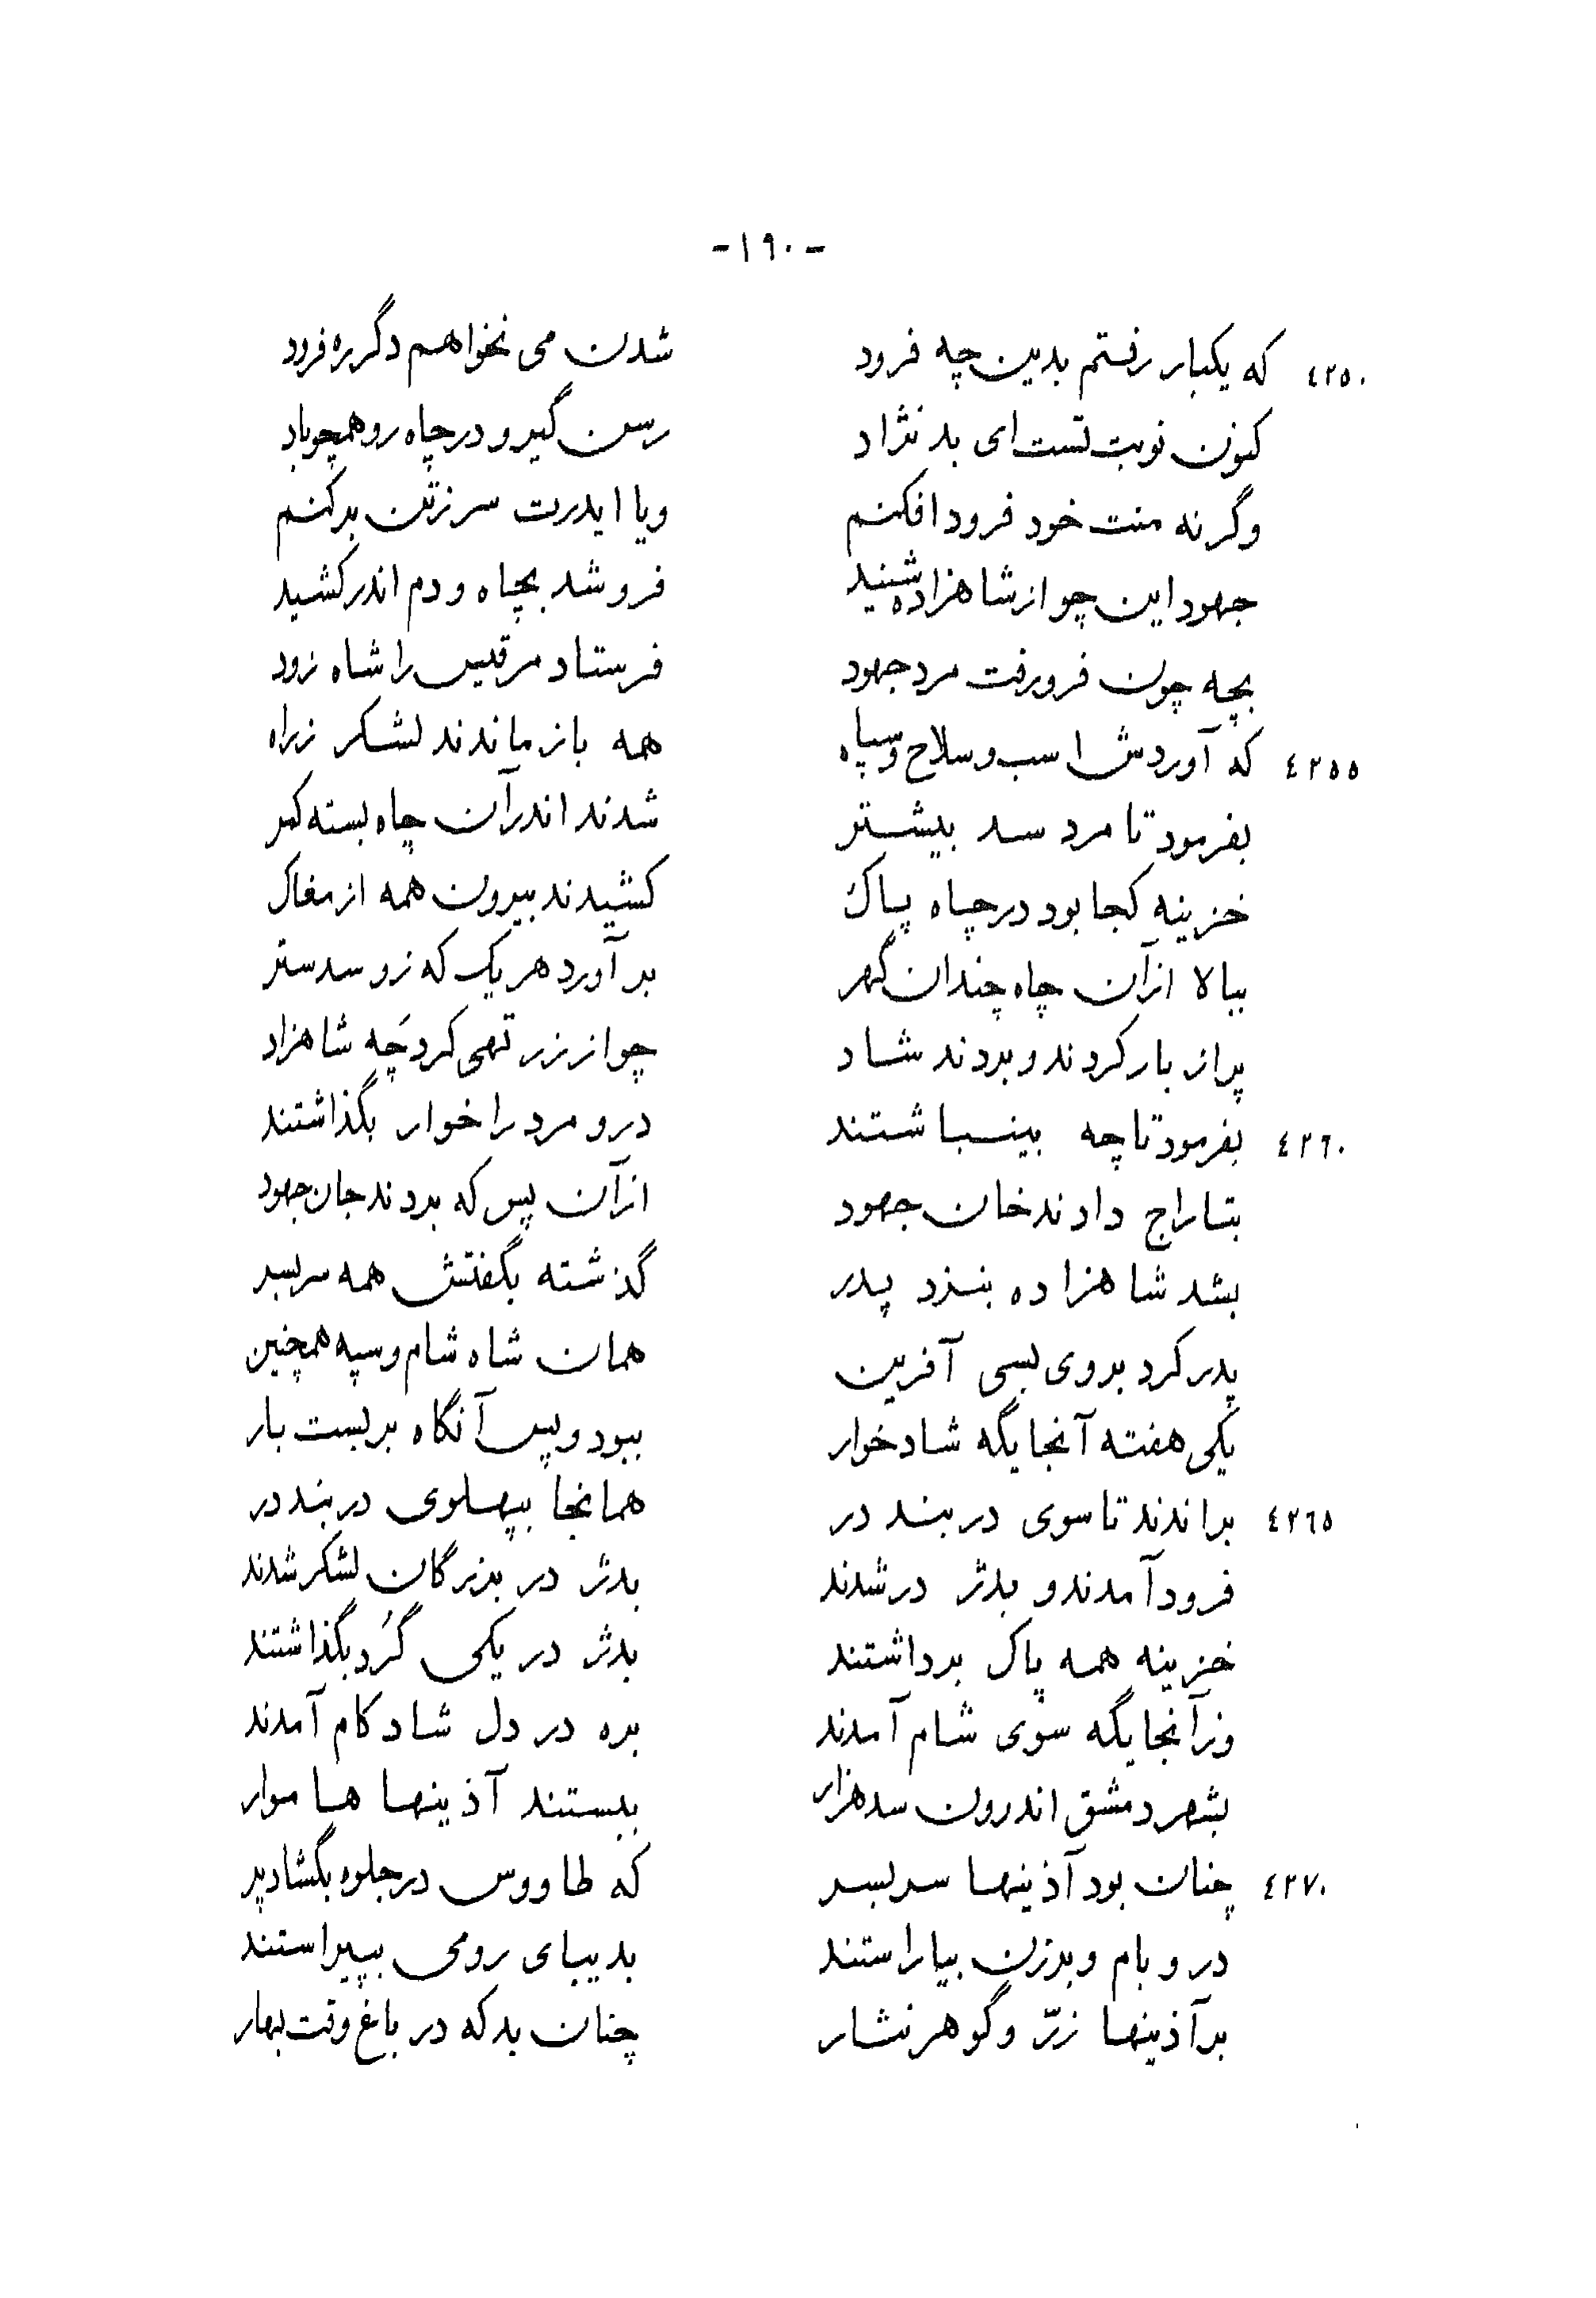 -١٩٠-
٤٢٥٠ که یکبار رفتم بدین چه فرود شدن می نخواهم دگر ره فرود
کنون نوبت تست ای بد نژاد رسن گیر و در چاه رو همچو باد
وگرنه منت خود فرود افکنم ویا ایدرت سر زتن برکنم
جهود این چو از شاهزاده شنید فرو شد بچاه و دم اندر کشید
بچه چون فرو رفت مرد جهود فرستاد مرقیس را شاه زود
٤٢٥٥ که آوردش اسب و سلاح و سپاه همه باز ماندند لشکر زراه
بفرمود تا مرد سد بیشتر شدند اندر آن چاه بسته کمر
خزینه کجا بود در چاه پاک کشیدند بیرون همه از مغاک
ببالا از آن چاه چندان گهر برآورد هر یک که زو سد ستر
پر از بار کردند و بردند شاد چو از زر تهی کرد چَه شاهزاد
٤٢٦٠ بفرمود تا چه بینباشتند درو مرد را خوار بگذاشتند
بتاراج دادند خان جهود از آن پس که بردند جان جهود
بشد شاهزاده بنزد پدر گذشته بگفتش همه سربسر
پدر کرد بروی بسی آفرین همان شاه شام و سپه همچنین
یکی هفته آنجایگه شاد خوار ببود و پس آنگاه بر بست بار
٤٢٦٥ براندند تا سوی دربند در همانجا بپهلوی دربند در
فرود آمدند و بدژ در شدند بدژ در بزرگان لشکر شدند
خزینه همه پاک برداشتند بدژ در یکی گُرد بگذاشتند
وز آنجایگه سوی شام آمدند بره در دل شاد کام آمدند
بشهر دمشق اندرون سد هزار ببستند آذینها هاموار
٤٢٧٠ چنان بود آذینها سربسر که طاووس در جلوه بگشاد پر
در و بام و برزن بیاراستند بدیبای رومی بپیراستند
بر آذینها زرّ و گوهر نثار چنان بد که در باغ وقت بهار